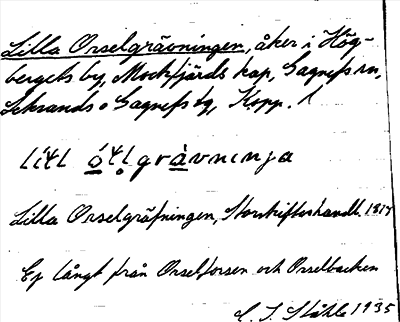 Lilla Orselgrävningen, åker i Hög-
bergets by, Mockfjärds kap, Gagnefs sn,
Leksands o Gagnefs tg, Kopp. l
litl ótlgràvnința
Lilla Orselgräfningen, Storskifteshandl. 1817
Ej långt från Orselforsen och Orselbacken
C. I. Ståhle 1935